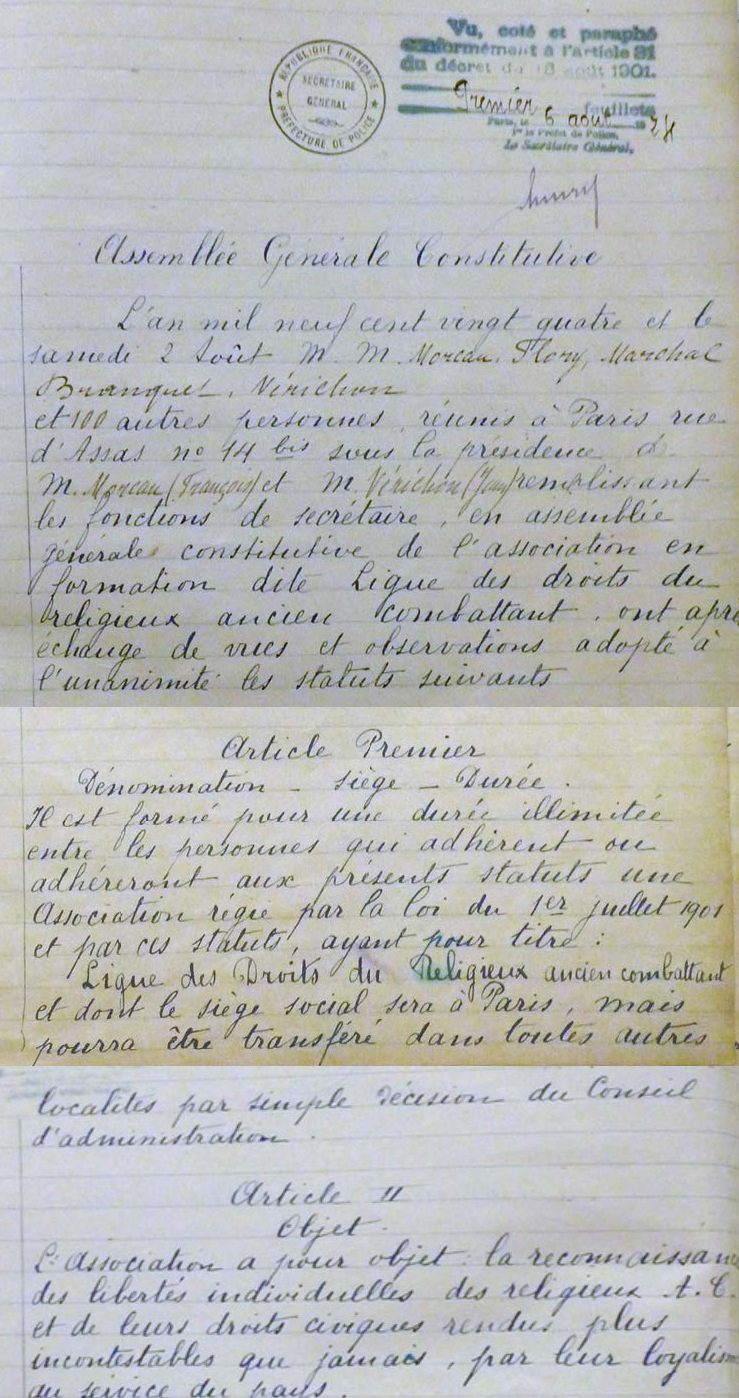 Vu, coté et paraphé
conformément à l'article 31
du décret du 16 août 1901.
Premier feuillets
Paris, le 6 août 1924
Pr le Préfet de Police,
Le Secrétaire Général,
RÉPUBLIQUE FRANÇAISE
SECRÉTAIRE
GÉNÉRAL
PRÉFECTURE DE POLICE
Assemblée Générale Constitutive
L'an mil neuf cent vingt quatre et le
samedi 2 Août M. M. Moreau, Flory, Marchal
Branquet, Vérichon
et 100 autres personnes, réunis à Paris rue
d'Assas no 44 bis sous la présidence de
M. Moreau (François) et M. Vérichon (Jean) remplissant
les fonctions de secrétaire, en assemblée
générale constitutive de l'association en
formation dite Ligue des droits du
religieux ancien combattant, ont après
échange de vues et observations adopté à
l'unanimité les statuts suivants
Article Premier
Dénomination - siège - Durée.
Il est formé pour une durée illimitée
entre les personnes qui adhèrent ou
adhéreront aux présents statuts une
Association régie par la loi du 1er juillet 1901
et par ces statuts, ayant pour titre :
Ligue des Droits du Religieux ancien combattant
et dont le siège social sera à Paris, mais
pourra être transféré dans toutes autres
localités par simple décision du Conseil
d'administration.
Article II
Objet.
L'Association a pour objet : la reconnaissance
des libertés individuelles des religieux A. C.
et de leurs droits civiques rendus plus
incontestables que jamais, par leur loyalisme
au service du pays.